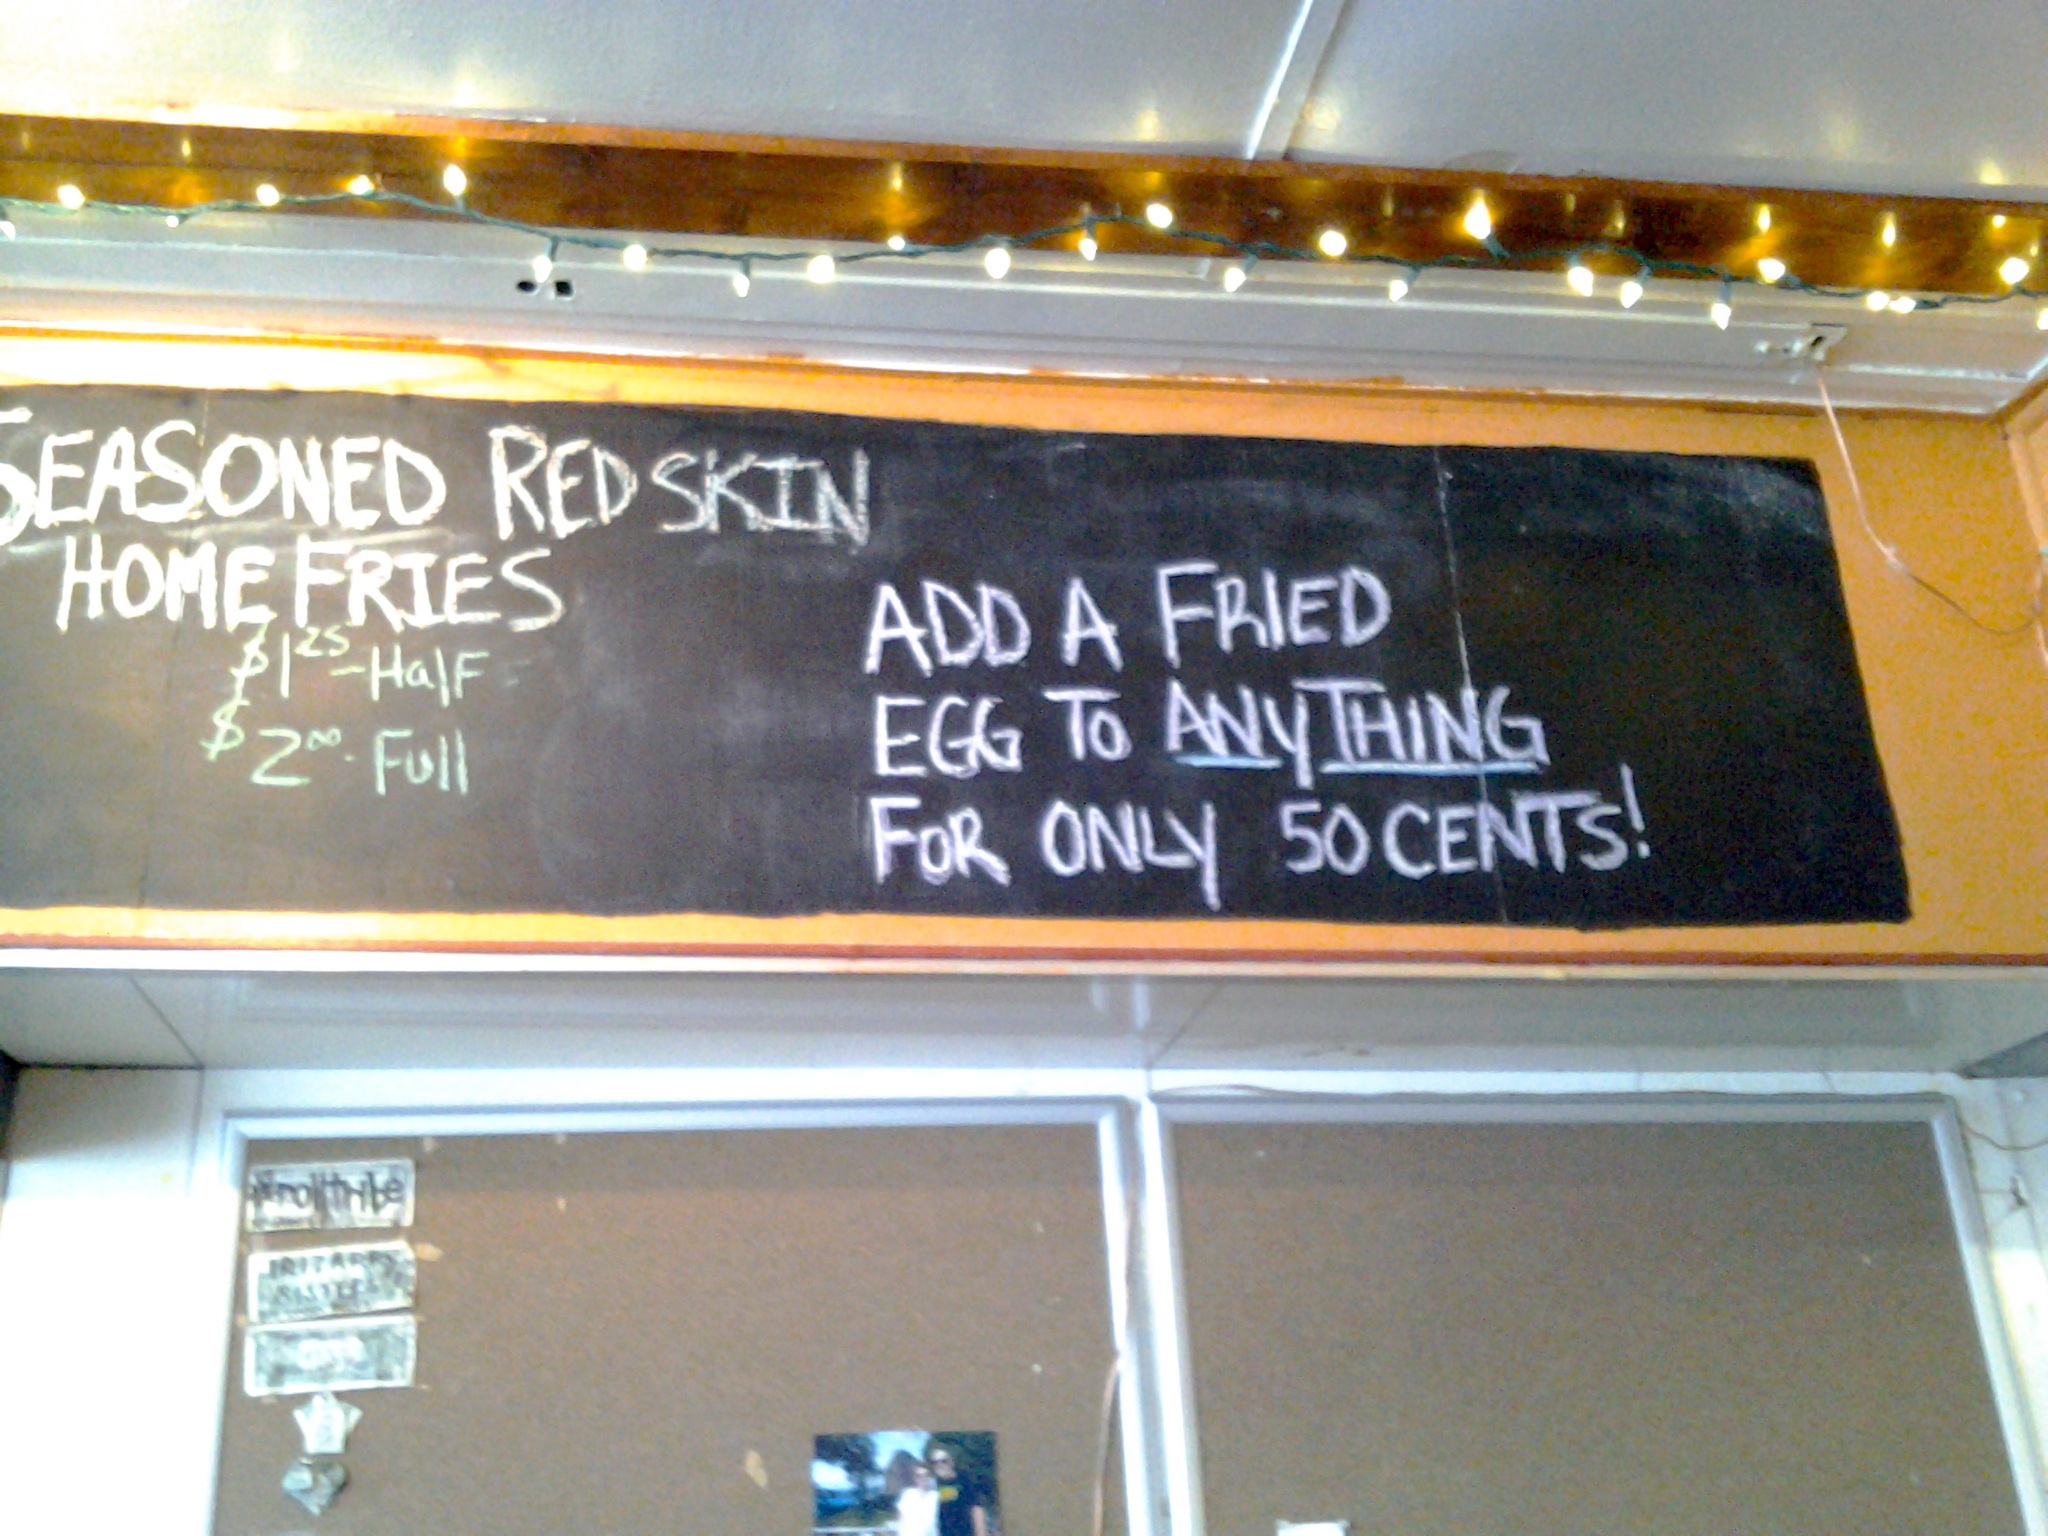 SEASONED REDSKIN
HOME FRIES
$1.25 - Half
$2.00 - Full
ADD A FRIED
EGG TO ANYTHING
FOR ONLY 50 CENTS!